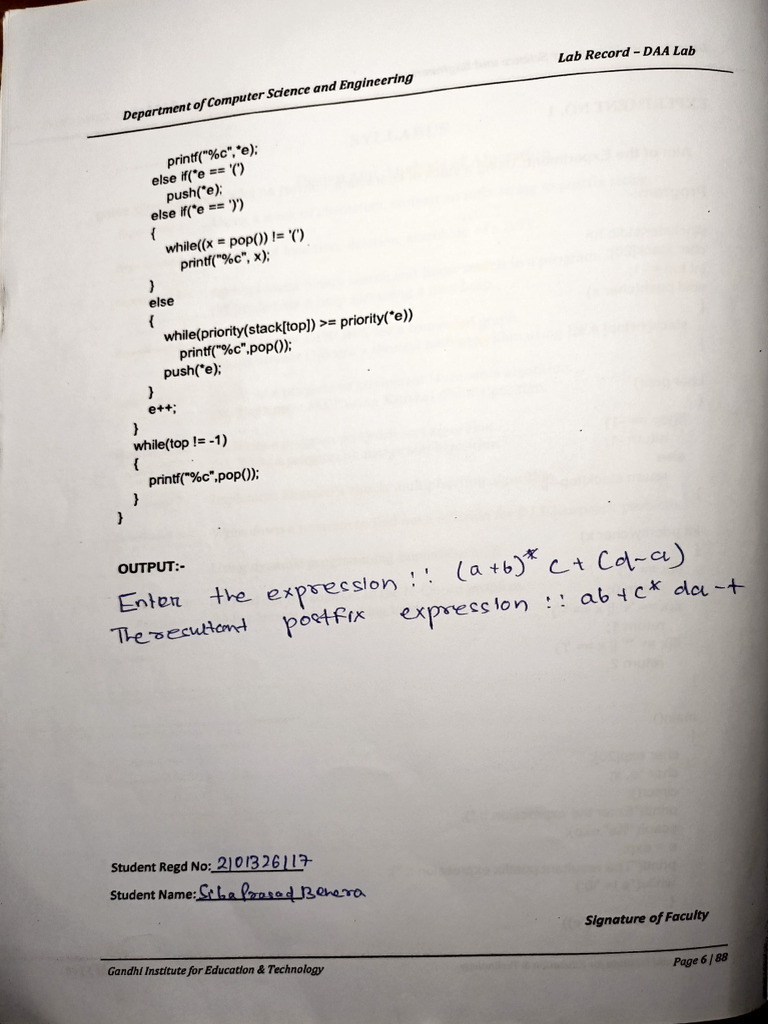 Lab Record – DAA Lab
Department of Computer Science and Engineering
printf("%c",*e);
else if(*e == '(')
push(*e);
else if(*e == ')')
{
while((x = pop()) != '(')
printf("%c", x);
}
else
{
while(priority(stack[top]) >= priority(*e))
printf("%c",pop());
push(*e);
}
e++;
}
while(top != -1)
{
printf("%c",pop());
}
}
OUTPUT:-
Enter the expression !! (a+b)* c+ (d-a)
The resultant postfix expression !! ab+c* da-+
Student Regd No: 2101326117
Student Name: Siba Prasad Behera
Signature of Faculty
Gandhi Institute for Education & Technology
Page 6 | 88